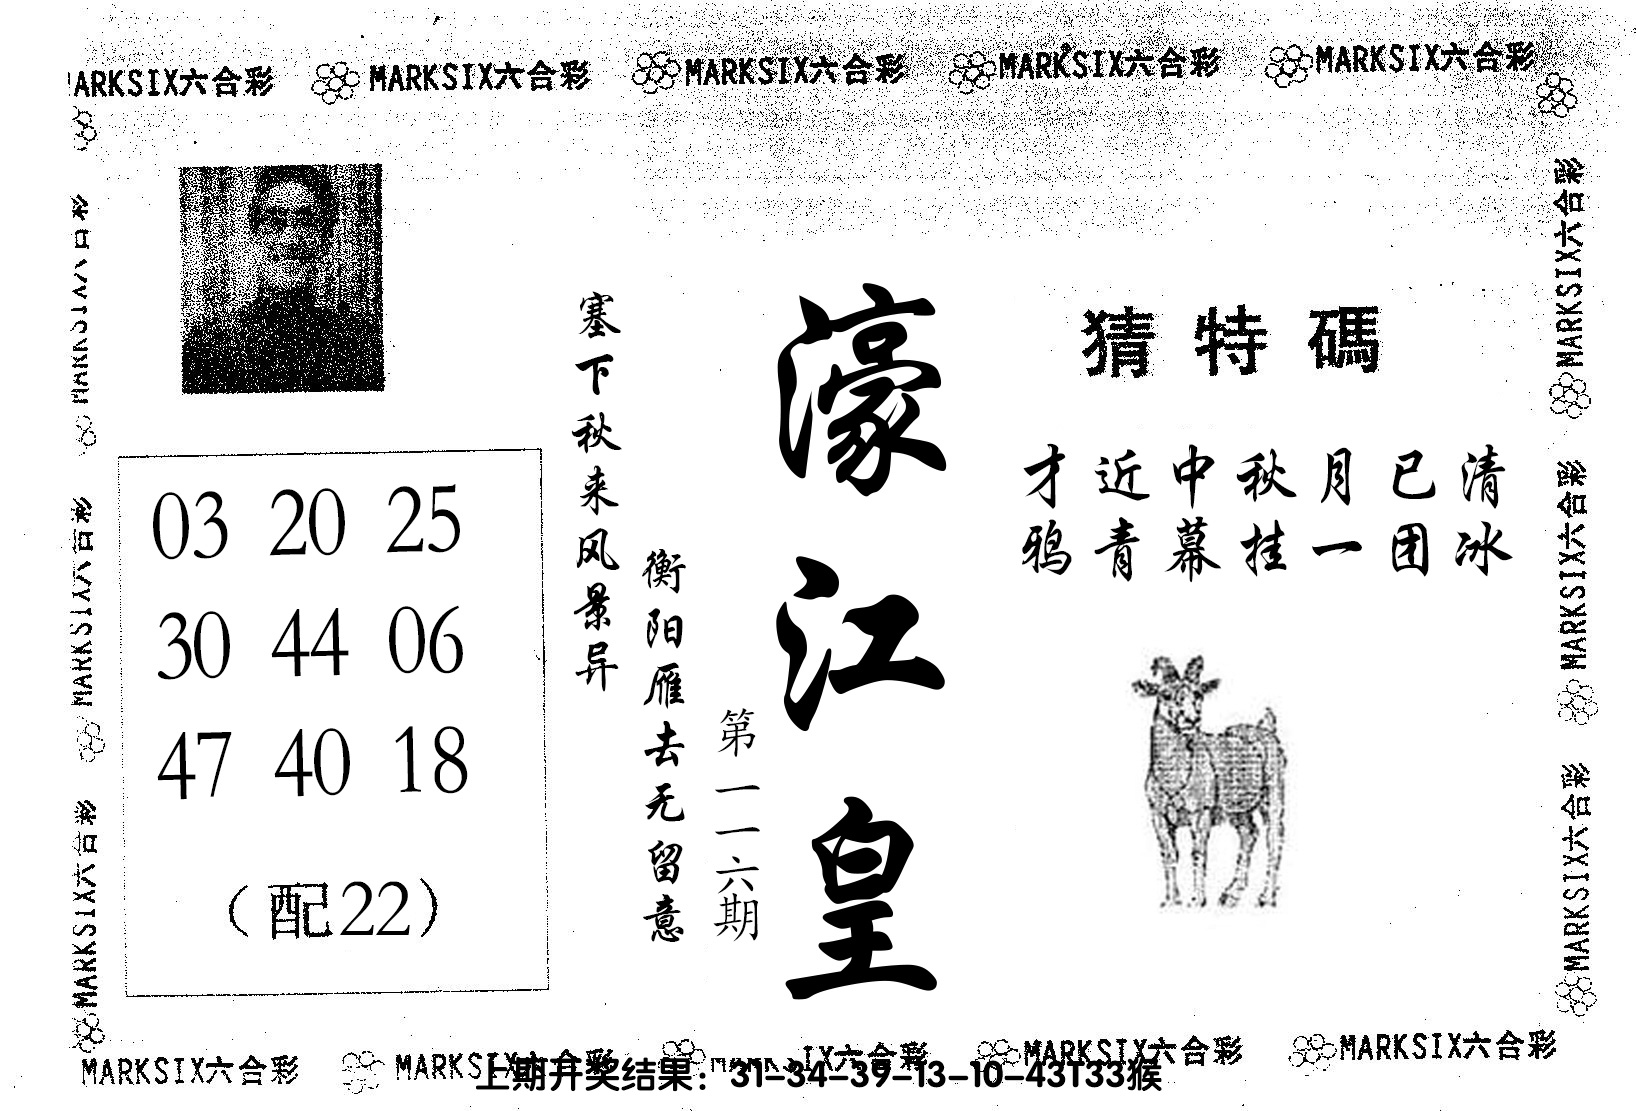 MARKSIX六合彩 MARKSIX六合彩 MARKSIX六合彩 MARKSIX六合彩 MARKSIX六合彩
猜特碼
才近中秋月已清
鸦青幕挂一团冰
濠江皇
第一一六期
塞下秋来风景异
衡阳雁去无留意
03 20 25
30 44 06
47 40 18
(配22)
MARKSIX六合彩
MARKSIX六合彩
MARKSIX六合彩
MARKSIX六合彩
MARKSIX六合彩
MARKSIX六合彩
MARKSIX六合彩 MARKSIX六合彩 MARKSIX六合彩 MARKSIX六合彩 MARKSIX六合彩
上期开奖结果：31-34-39-13-10-43T33猴